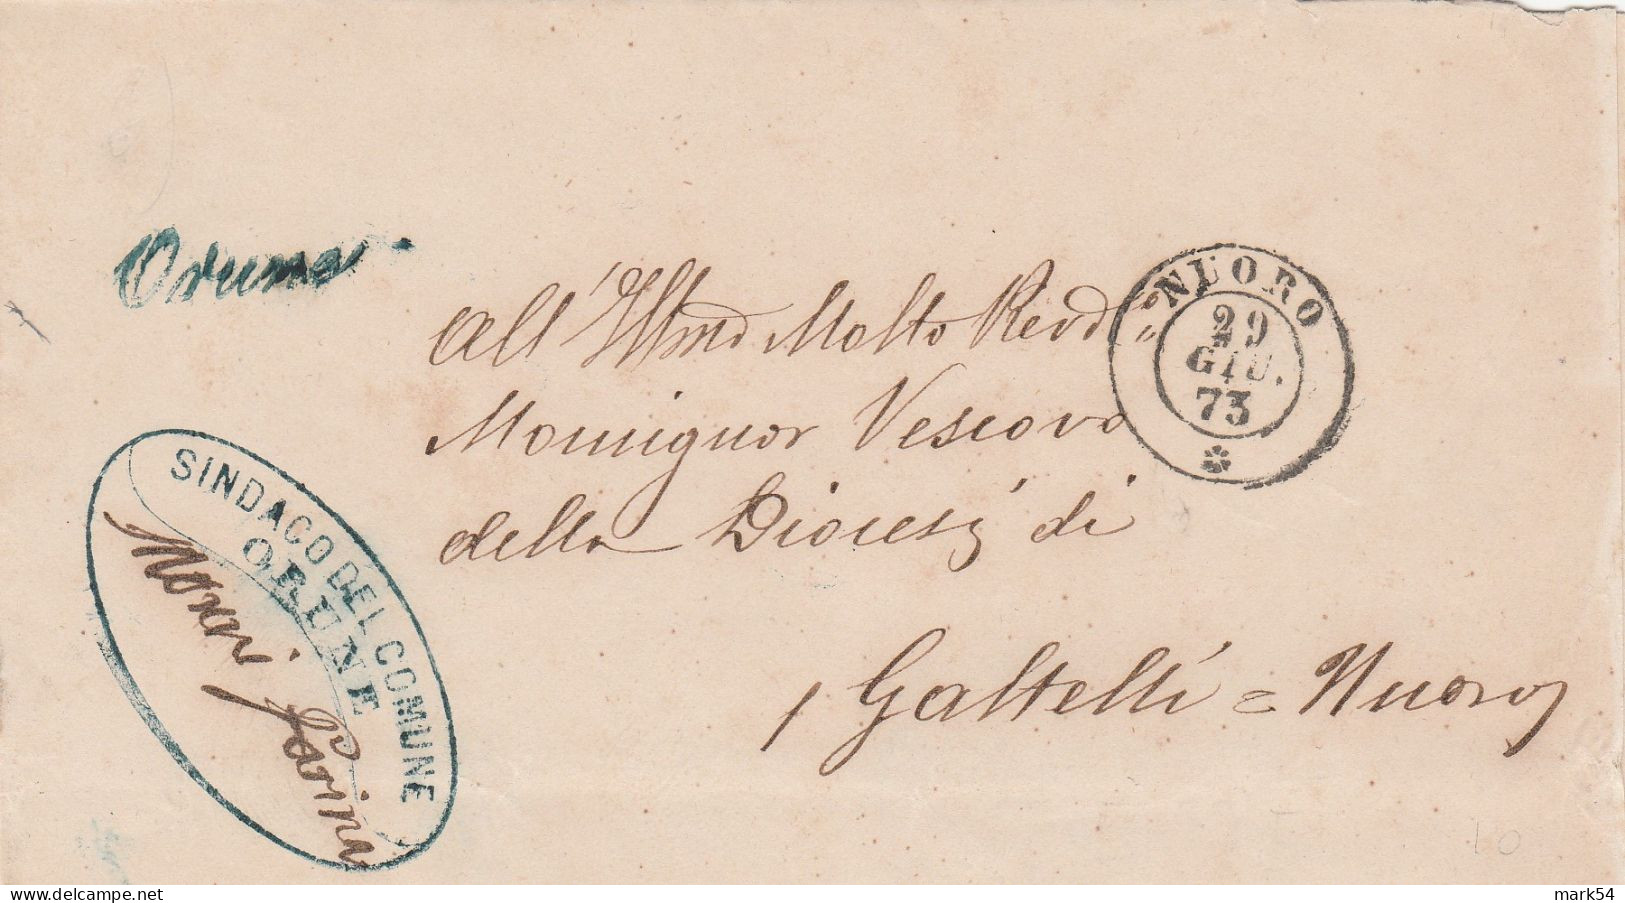 Orune
All'Illmo Molto Revdo
Monsignor Vescovo
della Diocesi di
Galtellì = Nuoro
NUORO
29
GIU.
73
SINDACO DEL COMUNE
ORUNE
Nanni
10
mark54